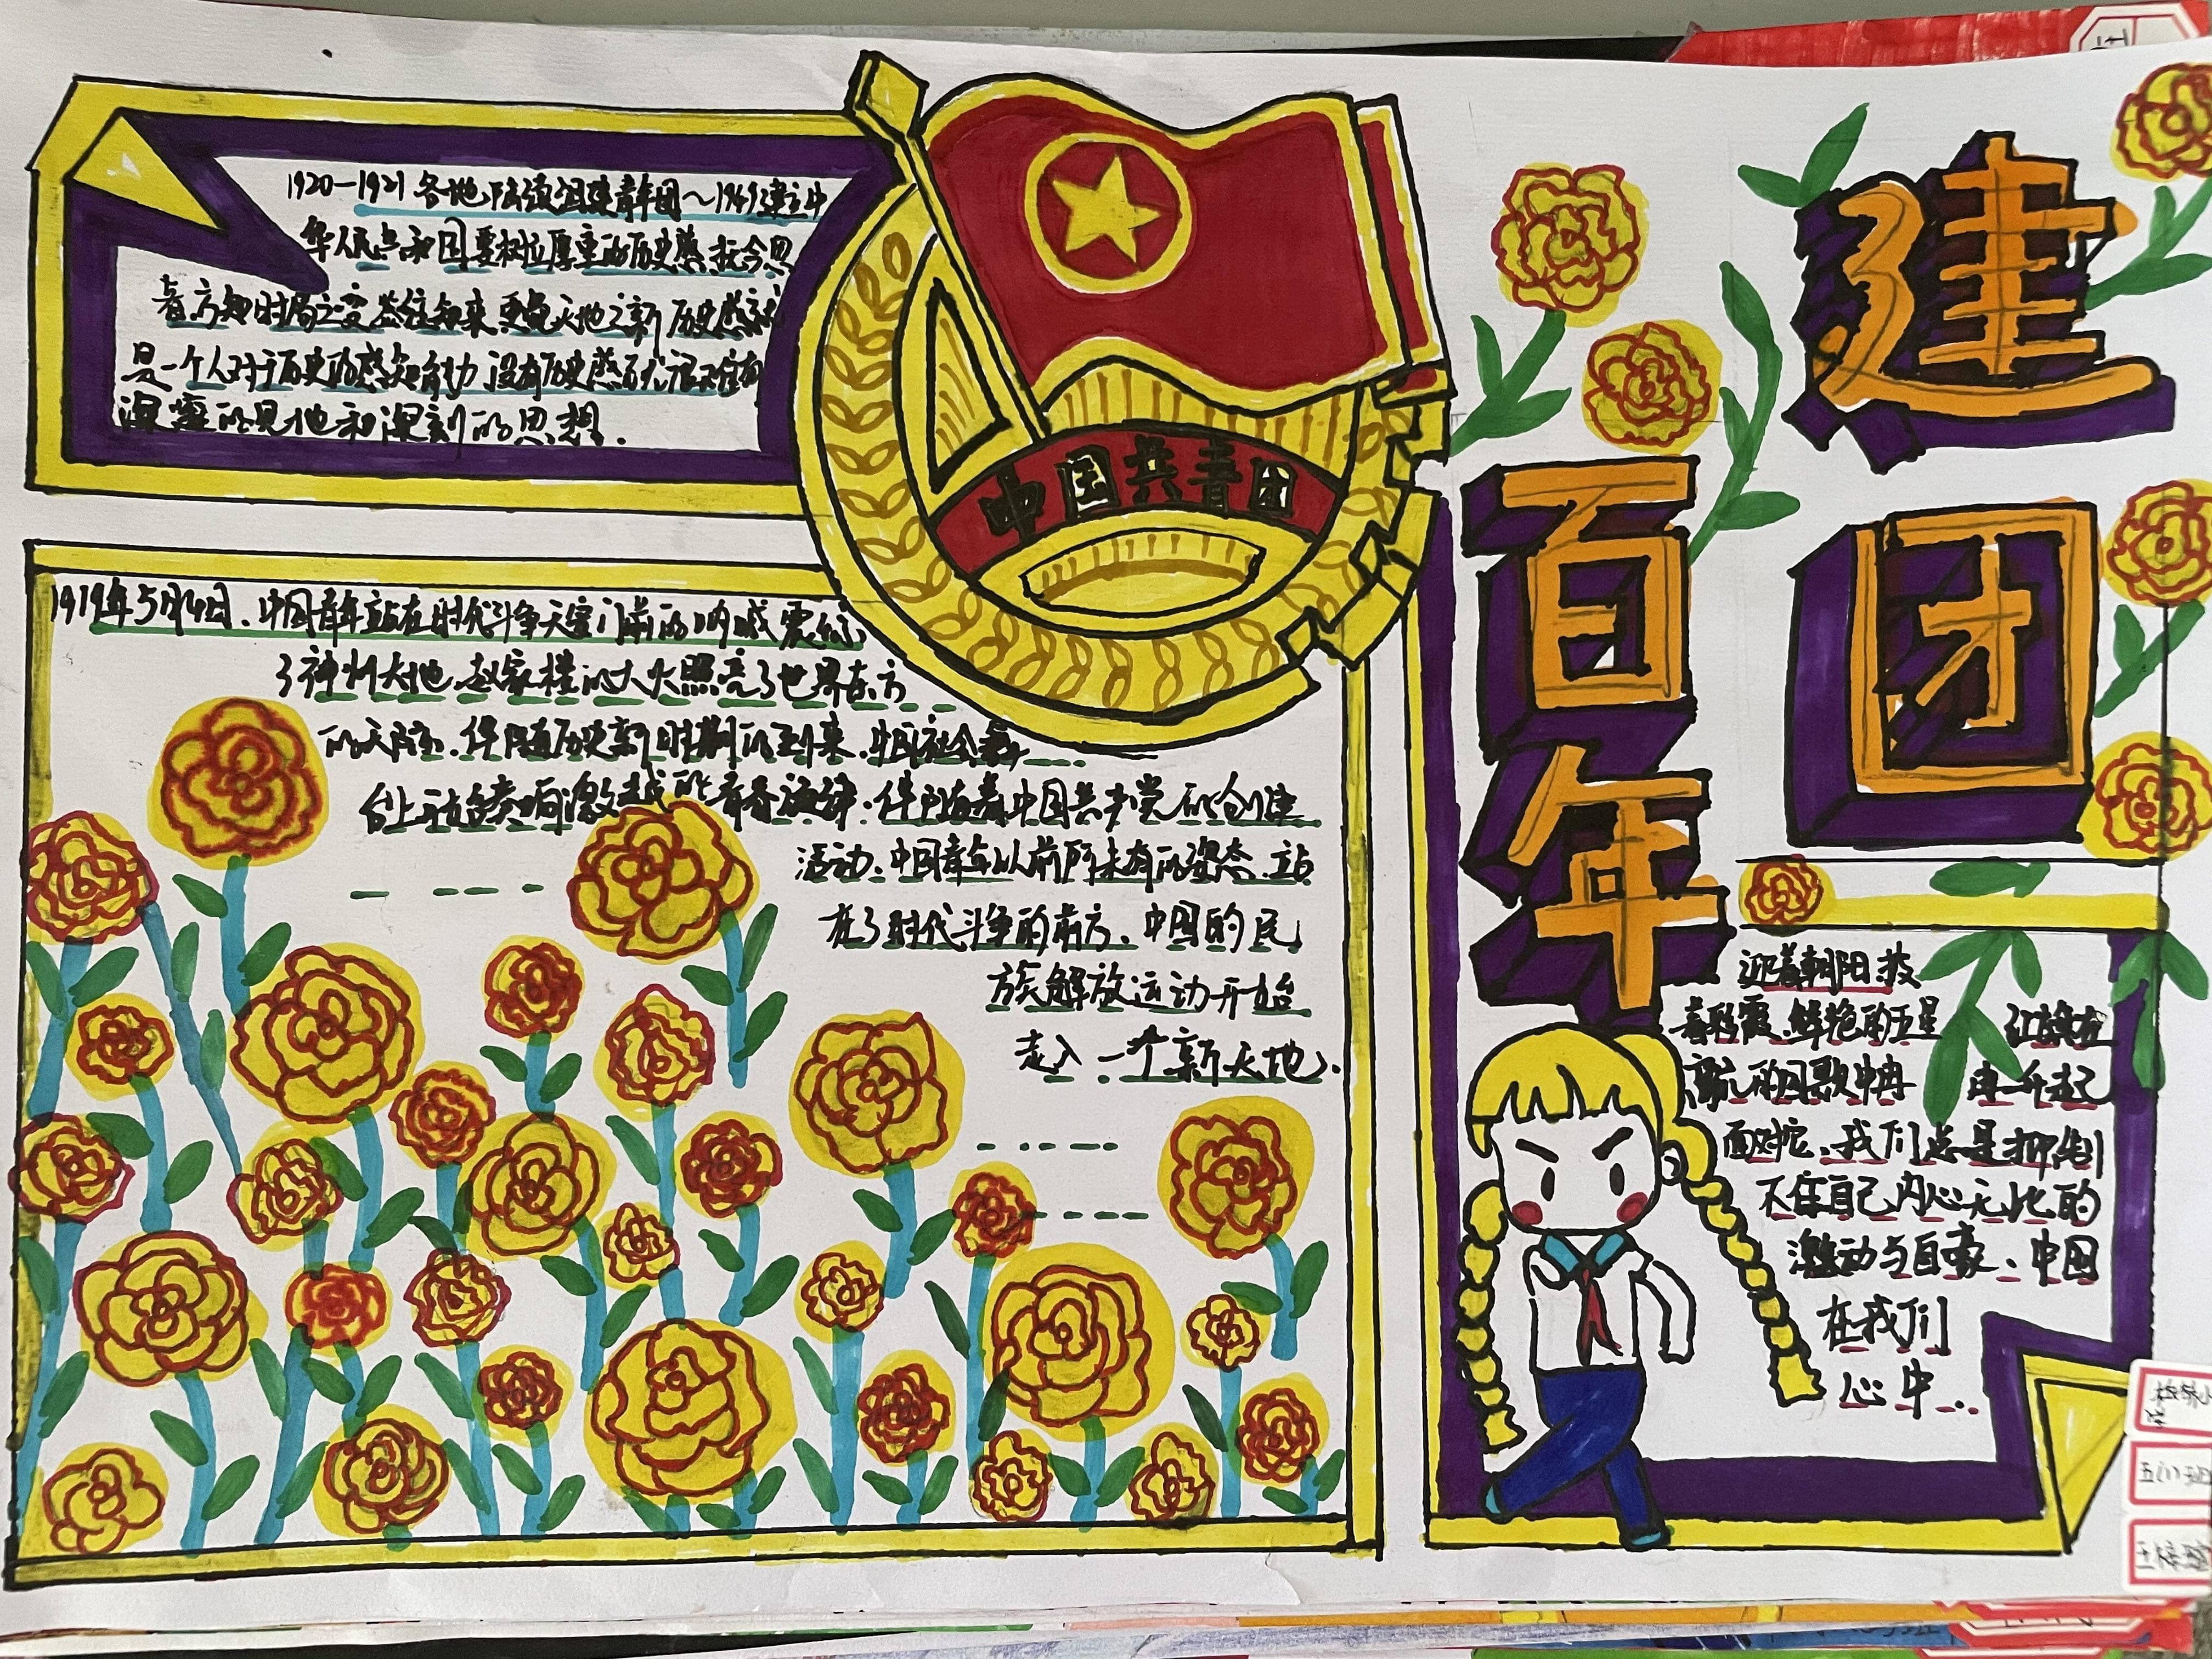 建团
百年
中国共青团
1920—1921各地陆续组建青年团～1949建立中
华人民共和国要树立厚重的历史感抚今思
昔方知时局之变鉴往知来更觉天地之新历史感
是一个人对于历史的感知能力没有历史感
深邃的见地和深刻的思想.
1919年5月4日、中国青年站在时代斗争天窗门前的呐喊震
了神州大地、赵家楼的大火照亮了世界东方
的天际、伴随历史新时期的到来、中国社会舞
台上开始奏响激越的青春旋律:伴随着中国共产党的创建
活动、中国青年以前所未有的姿态、站
在了时代斗争的前方、中国的民
族解放运动开始
走入一个新天地.
迎着朝阳、披
着彩霞、鲜艳的五星红旗在
高亢的国歌中冉冉升起
面对它、我们总是抑制
不住自己内心无比的
激动与自豪、中国
在我们
心中…
五(1)班
王